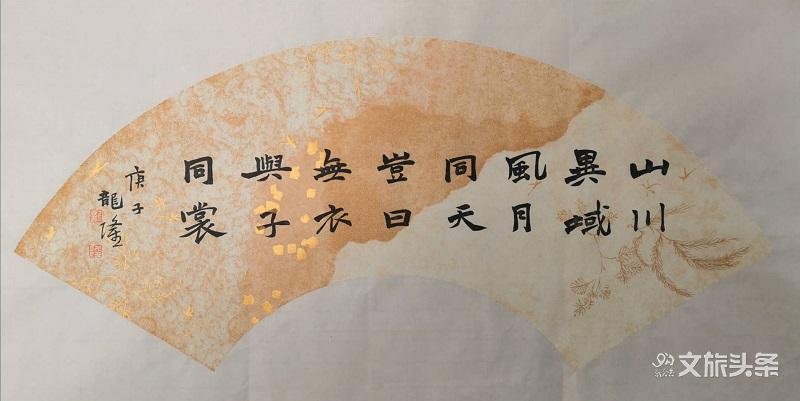 山川
異域
風月
同天
豈曰
無衣
與子
同裳
庚子
龍隆
文旅头条